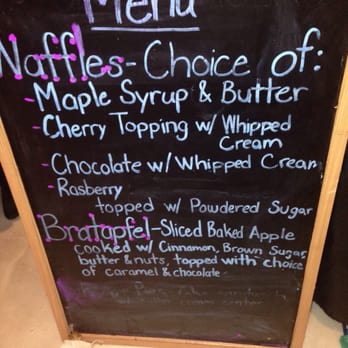 Menu
Naffles - Choice of:
- Maple Syrup & Butter
- Cherry Topping w/ Whipped
Cream
- Chocolate w/ Whipped Cream
- Rasberry
topped w/ Powdered Sugar
Bratapfel - Sliced Baked Apple
cooked w/ Cinnamon, Brown Sugar,
butter & nuts, topped with choice
of caramel & chocolate